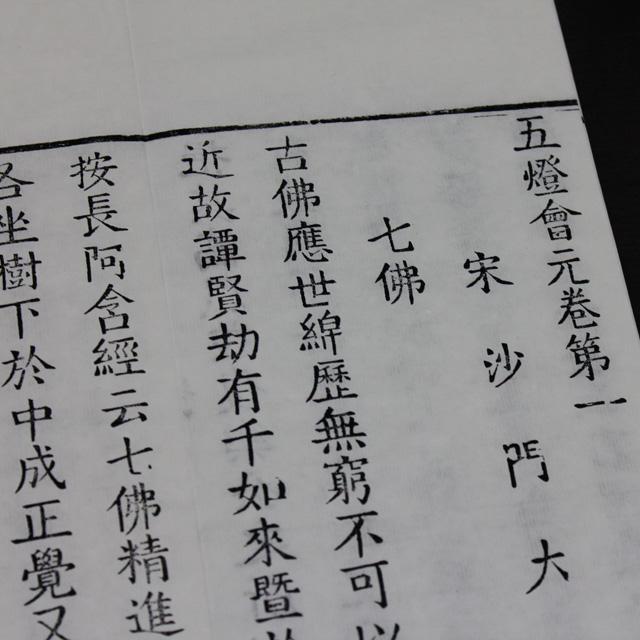 五燈會元卷第一
宋沙門大
七佛
古佛應世綿歷無窮不可
近故譚賢劫有千如來暨
按長阿含經云七佛精進
各坐樹下於中成正覺又